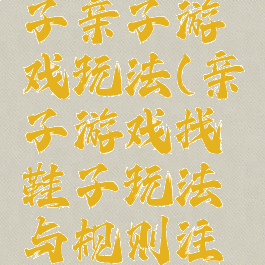 子亲子游
戏玩法(亲
子游戏找
鞋子玩法
与规则注